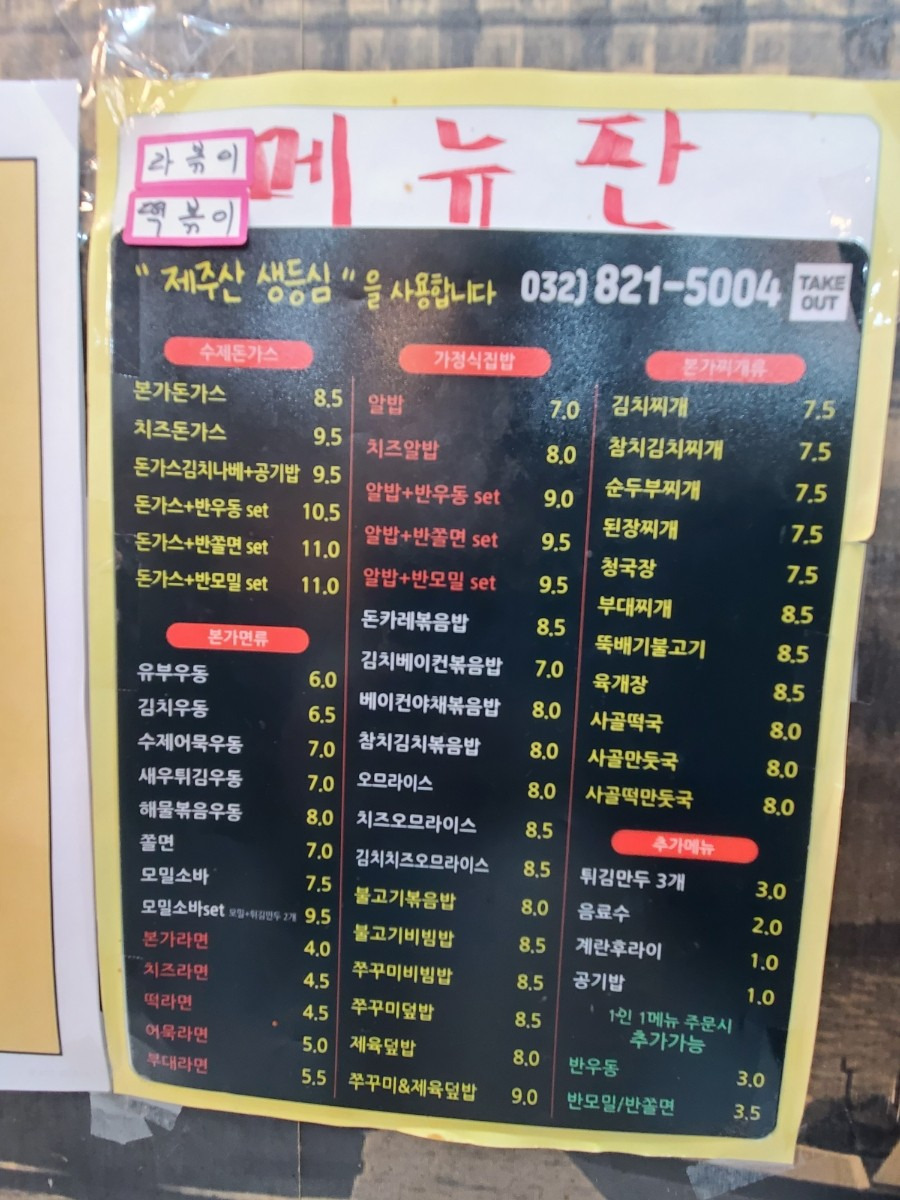 메뉴판
라볶이
떡볶이
"제주산 생등심"을 사용합니다 032) 821-5004 TAKE OUT
수제돈가스
본가돈가스 8.5
치즈돈가스 9.5
돈가스김치나베+공기밥 9.5
돈가스+반우동 set 10.5
돈가스+반쫄면 set 11.0
돈가스+반모밀 set 11.0
본가면류
유부우동 6.0
김치우동 6.5
수제어묵우동 7.0
새우튀김우동 7.0
해물볶음우동 8.0
쫄면 7.0
모밀소바 7.5
모밀소바set 모밀+튀김만두 2개 9.5
본가라면 4.0
치즈라면 4.5
떡라면 4.5
어묵라면 5.0
부대라면 5.5
가정식집밥
알밥 7.0
치즈알밥 8.0
알밥+반우동 set 9.0
알밥+반쫄면 set 9.5
알밥+반모밀 set 9.5
돈카레볶음밥 8.5
김치베이컨볶음밥 7.0
베이컨야채볶음밥 8.0
참치김치볶음밥 8.0
오므라이스 8.0
치즈오므라이스 8.5
김치치즈오므라이스 8.5
불고기볶음밥 8.0
불고기비빔밥 8.5
쭈꾸미비빔밥 8.5
쭈꾸미덮밥 8.5
제육덮밥 8.0
쭈꾸미&제육덮밥 9.0
본가찌개류
김치찌개 7.5
참치김치찌개 7.5
순두부찌개 7.5
된장찌개 7.5
청국장 7.5
부대찌개 8.5
뚝배기불고기 8.5
육개장 8.5
사골떡국 8.0
사골만둣국 8.0
사골떡만둣국 8.0
추가메뉴
튀김만두 3개 3.0
음료수 2.0
계란후라이 1.0
공기밥 1.0
1인 1메뉴 주문시
추가가능
반우동 3.0
반모밀/반쫄면 3.5